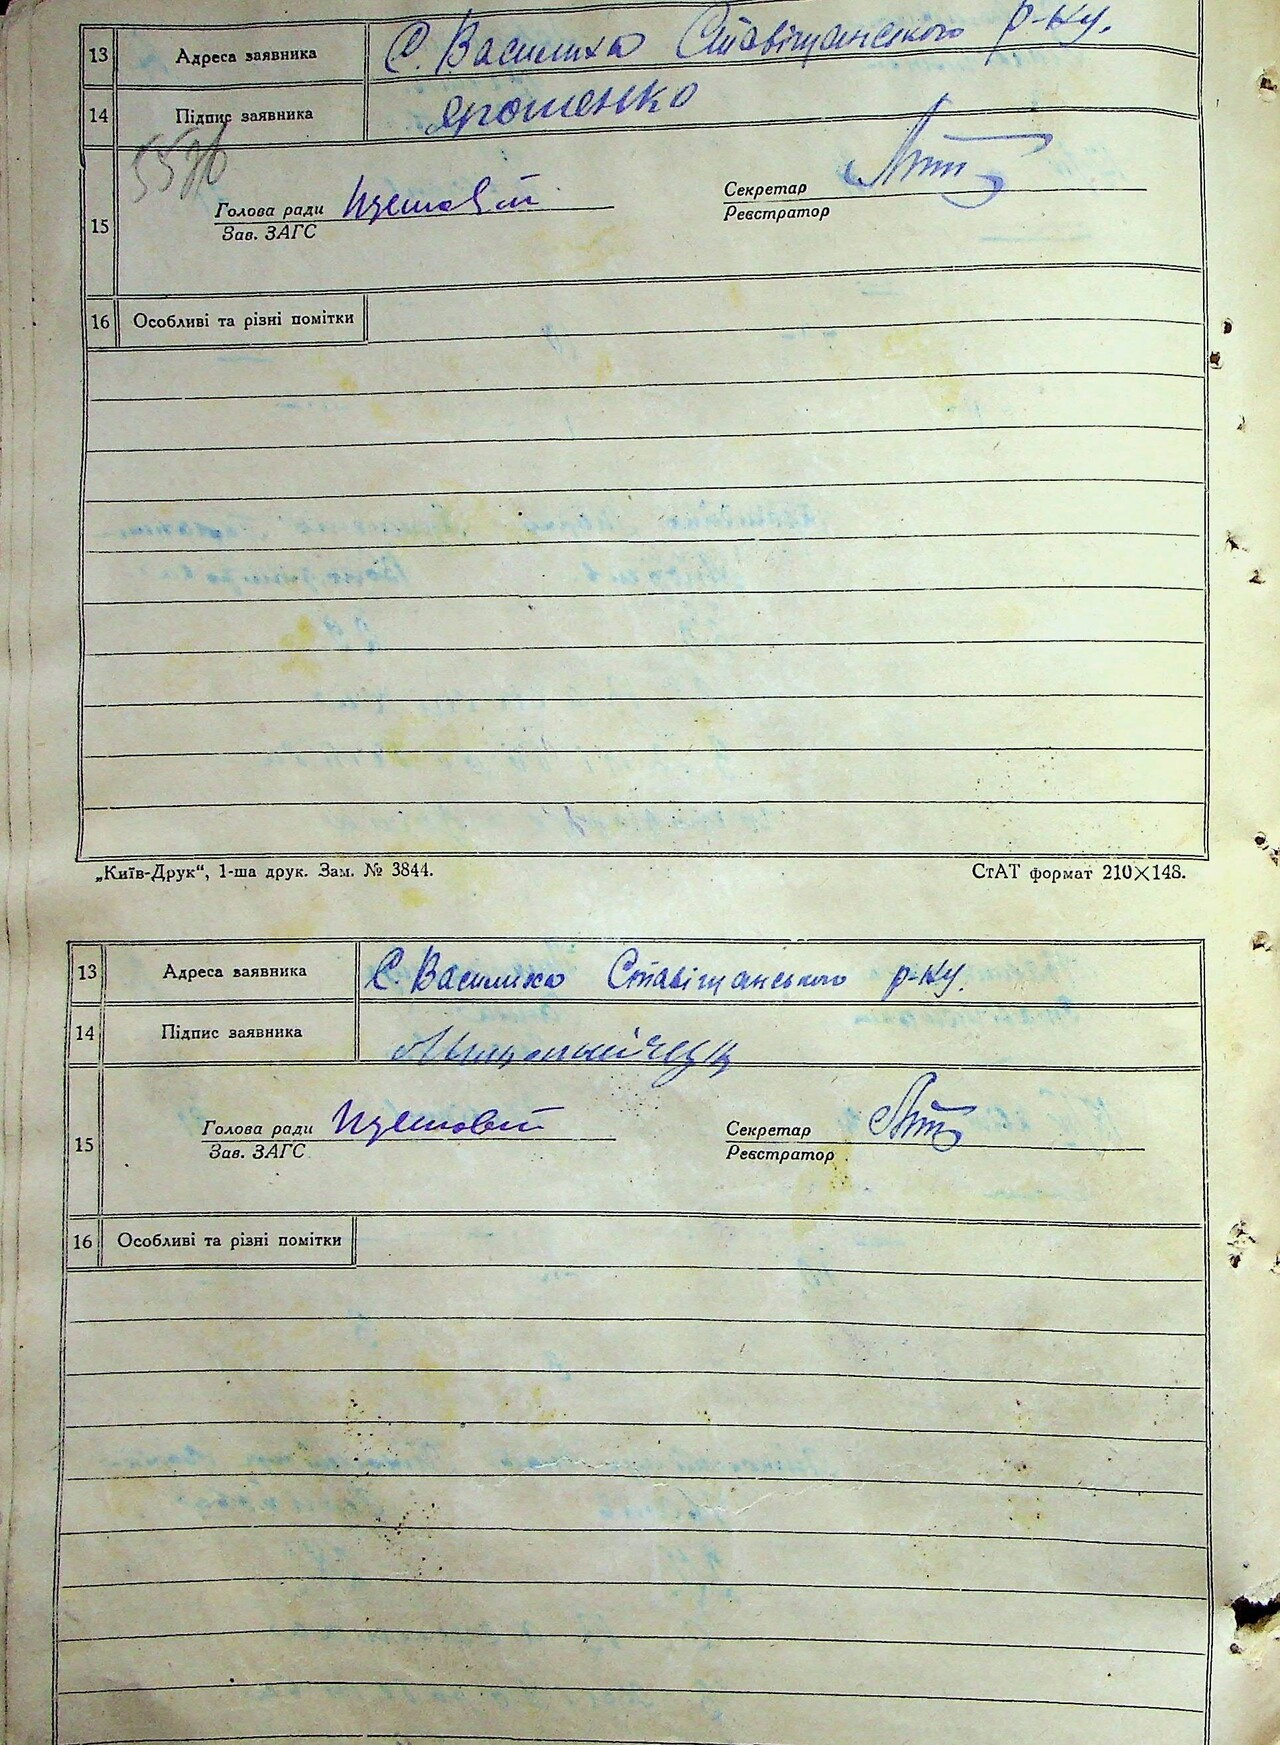 13 Адреса заявника С. Василиха Ставіщанського р-ну.
14 Підпис заявника Ярошенко
15
Голова ради
Секретар
Зав. ЗАГС
Реєстратор
16 Особливі та різні помітки
„Київ-Друк“, 1-ша друк. Зам. № 3844. СтАТ формат 210×148.
13 Адреса заявника С. Василиха Ставіщанського р-ну.
14 Підпис заявника
15
Голова ради
Секретар
Зав. ЗАГС
Реєстратор
16 Особливі та різні помітки